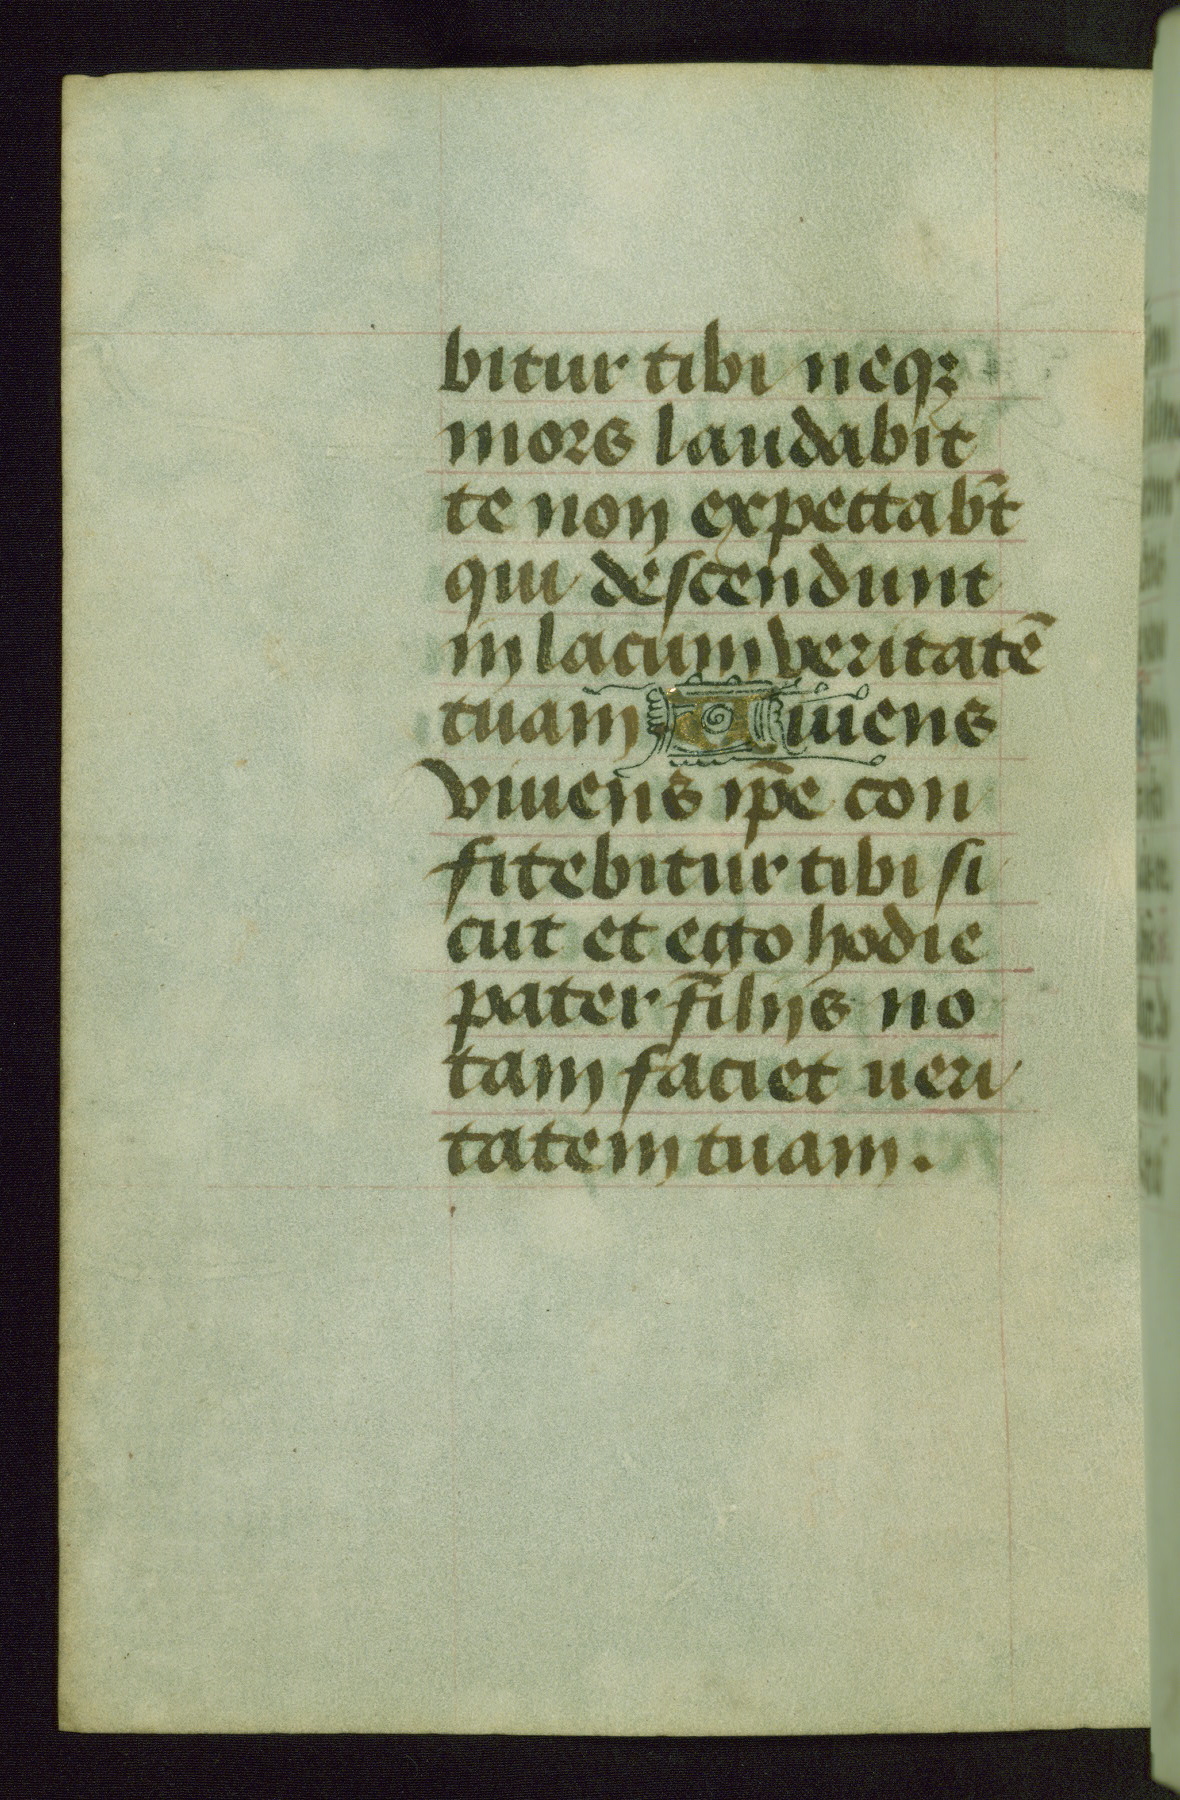 bitur tibi neqꝫ
mors laudabit
te non expectab̄t
qui descendunt
in lacum veritatē
tuam Viuens
viuens ip̄e con
fitebitur tibi si
cut et ego hodie
pater filijs no
tam faciet ueri
tatem tuam.